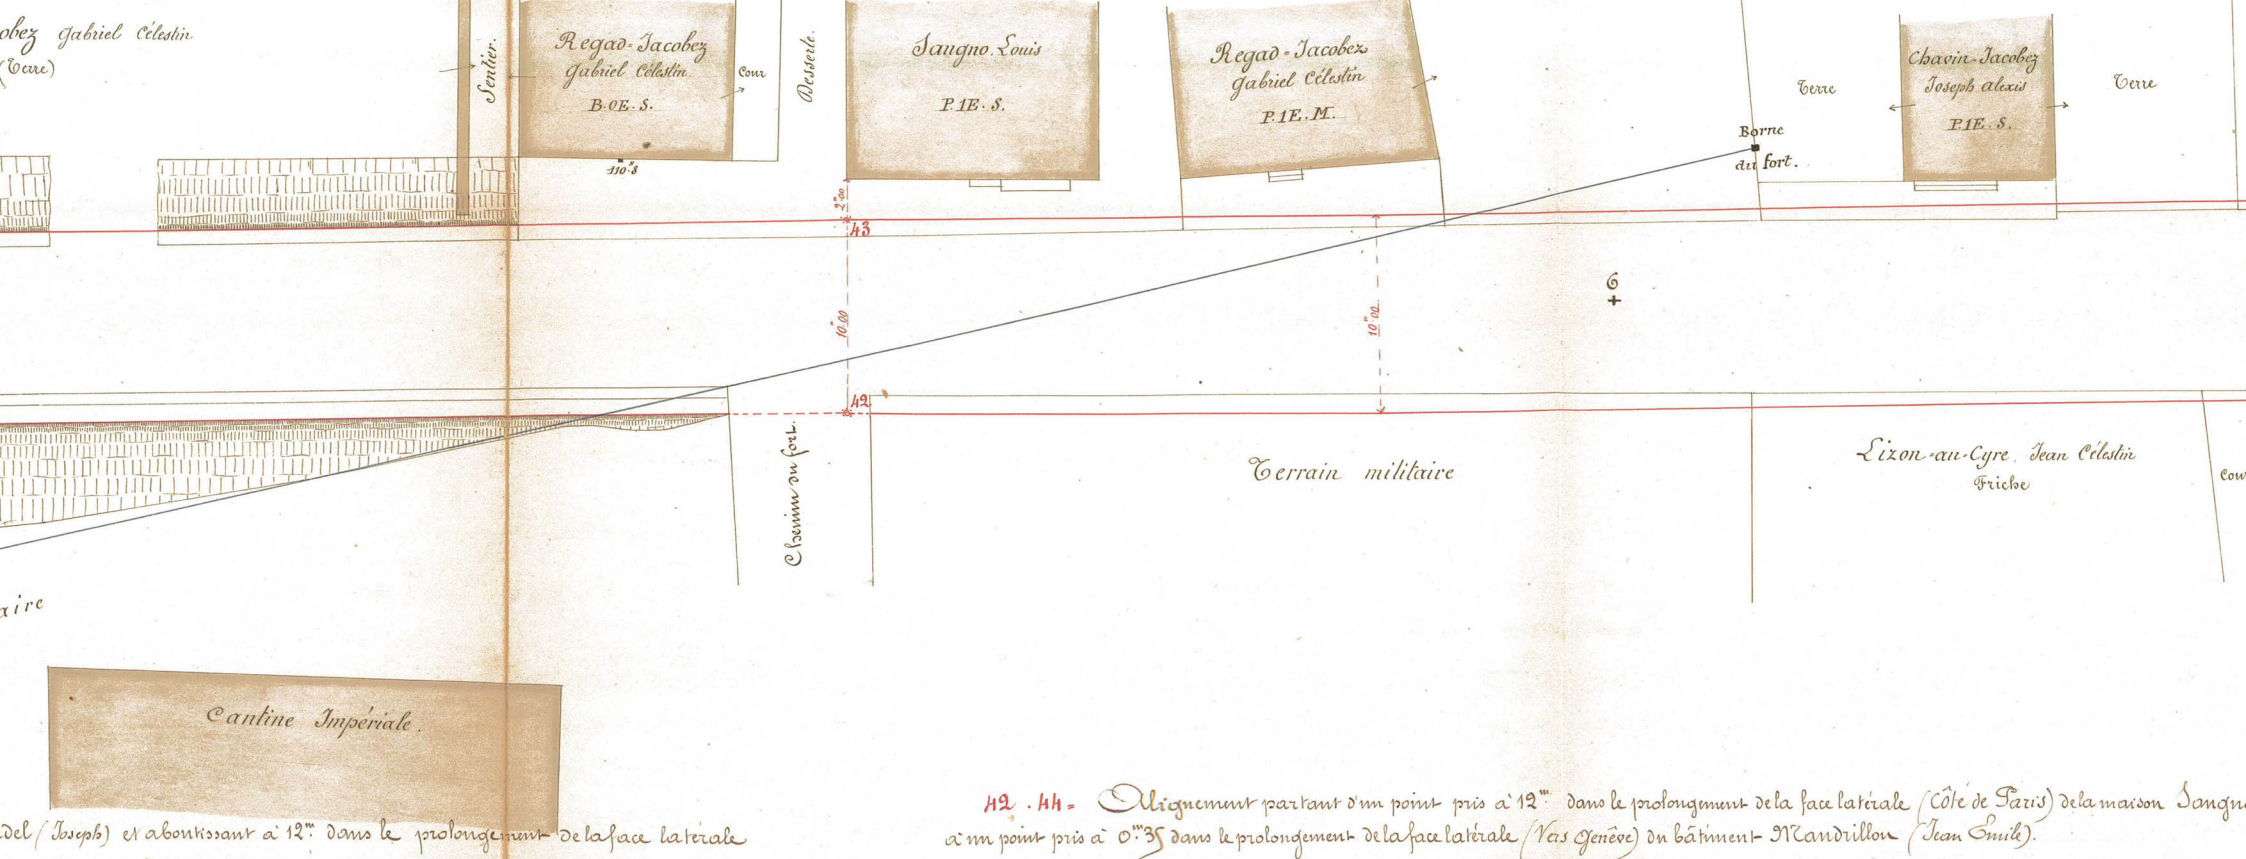 obez Gabriel Célestin
(Terre)
Sentier.
Regad=Jacobez
Gabriel Célestin
B.OE.S.
110.8
Cour
Desserte.
Jaugno. Louis
P.1E.S.
Regad=Jacobez
Gabriel Célestin
P.1E.M.
Terre
Borne
du fort.
Chavin=Jacobez
Joseph Alexis
P.1E.S.
Terre
2m00
43
10m00
10m00
6
42
Chemin du fort.
Terrain militaire
Lizon-au-Cyre. Jean Célestin
Friche
Cour
aire
Cantine Impériale.
del (Joseph) et aboutissant à 12m. dans le prolongement de la face latérale
42.44= Alignement partant d'un point pris à 12m. dans le prolongement de la face latérale (Côté de Paris) de la maison Jaugn
à un point pris à 0m35 dans le prolongement de la face latérale (Vers Genève) du bâtiment Mandrillon (Jean Émile).